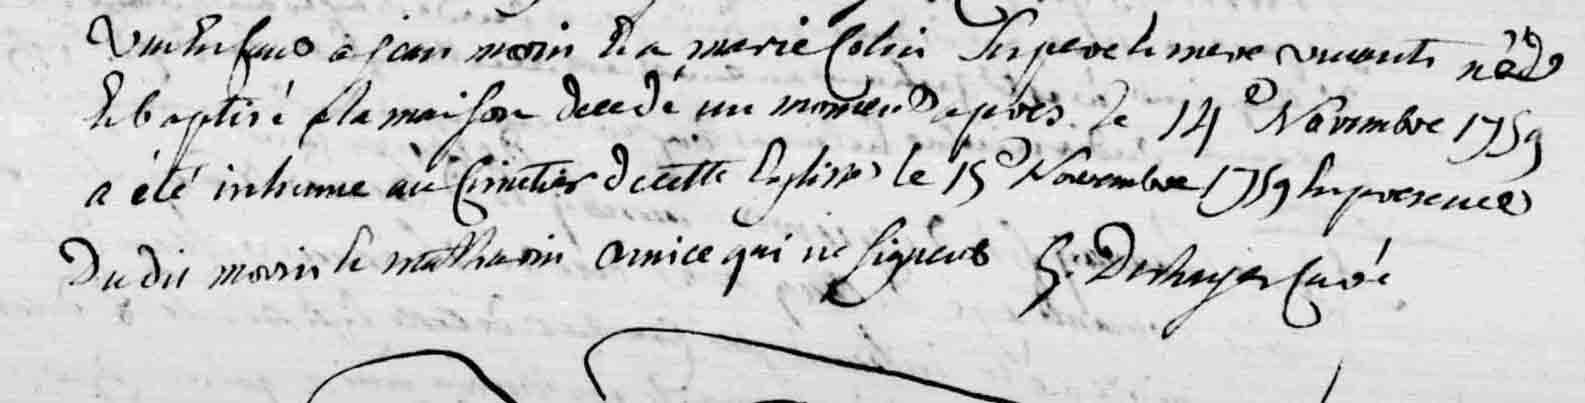 un Enfans a jean morin Et a marie Colin Ses pere et mere vivants né
Et baptisé a la maison decedé un moment apres le 14e Novembre 1759
a été inhumé au Cimetier de cette Eglise le 15e Novembre 1759 En presence
Dudit morin Et mathurin qui ne signent G: Deshayes Curé